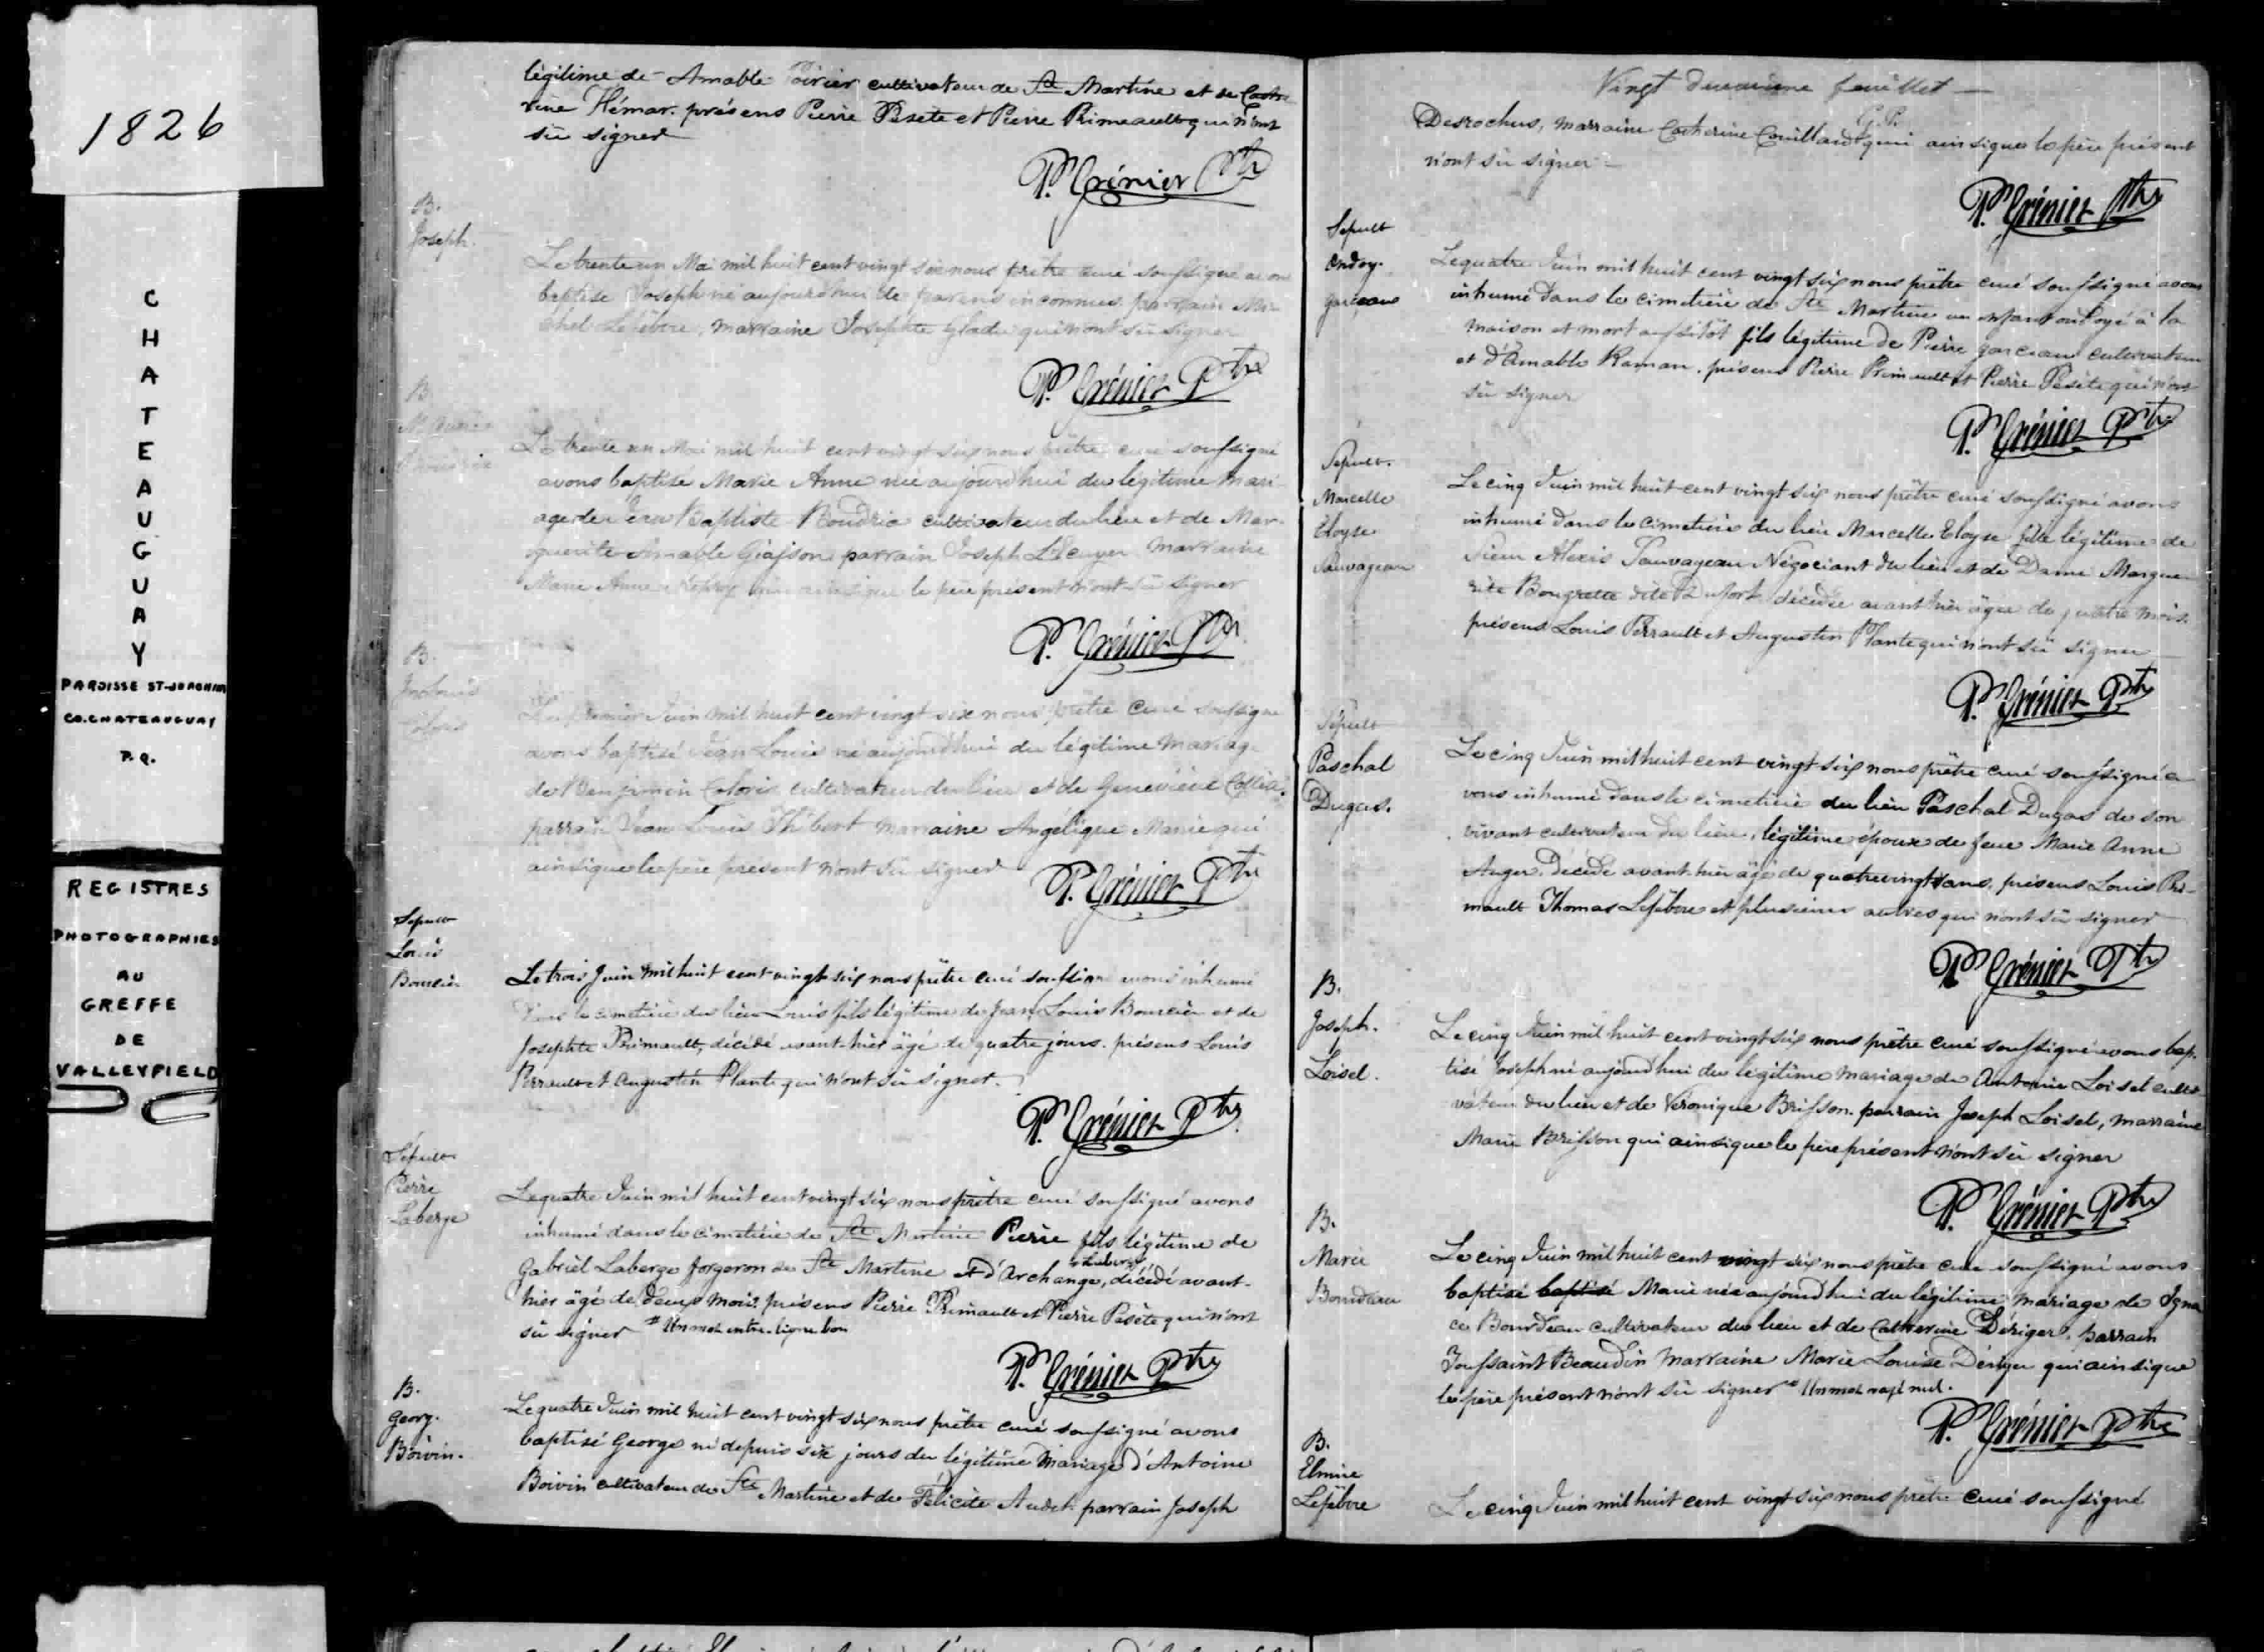 1826
CHATEAUGUAY
PAROISSE ST-JOACHIM
CO. CHATEAUGUAY
P. Q.
REGISTRES
PHOTOGRAPHIES
AU
GREFFE
DE
VALLEYFIELD
légitime de Amable Poirier cultivateur de Ste Martine et de Cathe-
rine Hémar. présens Pierre Pesete et Pierre Primeault qui n'ont
sû signer
P. Grénier Ptre
B.
Joseph.
Le trente un Mai mil huit cent vingt six nous prêtre curé soussigné avons
baptisé Joseph né aujourd'hui de parens inconnus. parrain Mi-
chel Lefebvre, marraine Josephte Gladu qui n'ont sû signer
P. Grénier Ptre
B.
M. Anne
Le trente un Mai mil huit cent vingt six nous prêtre curé soussigné
avons baptisé Marie Anne née aujourd'hui du légitime mari-
age de Jean Baptiste Boudria cultivateur du lieu et de Mar-
guerite Amable Giasson parrain Joseph L'Ecuyer marraine
Marie Anne qui ainsi que le père présent n'ont sû signer
P. Grénier Ptre
B.
Jean Louis
Caloris
Le premier Juin mil huit cent vingt six nous prêtre curé soussigné
avons baptisé Jean Louis né aujourd'hui du légitime mariage
de Benjamin Caloris cultivateur du lieu et de Geneviève
parrain Jean Louis Thibert marraine Angélique Marie qui
ainsi que le père présent n'ont sû signer
P. Grénier Ptre
Sepult
Louis
Bourcier
Le trois Juin mil huit cent vingt six nous prêtre curé soussigné avons inhumé
dans le cimetière du lieu Louis fils légitime de Jean Louis Bourcier et de
Josephte Primault, décédé avant-hier âgé de quatre jours. présens Louis
Perrault et Augustin Plante qui n'ont sû signer.
P. Grénier Ptre
Sepult
Pierre
Laberge
Le quatre Juin mil huit cent vingt six nous prêtre curé soussigné avons
inhumé dans le cimetière de Ste Martine Pierre fils légitime de
Gabriël Laberge forgeron de Ste Martine et d'Archange, décédé avant-
hier âgé de deux mois. présens Pierre Primault et Pierre Pesète qui n'ont
sû signer # Un mot entre-ligne bon
P. Grénier Ptre
B.
Georg.
Boivin.
Le quatre Juin mil huit cent vingt six nous prêtre curé soussigné avons
baptisé George né depuis six jours du légitime mariage d'Antoine
Boivin cultivateur de Ste Martine et de Félicité Audet. parrain Joseph
Vingt deuxième feuillet
G. P.
Desrochers, marraine Catherine Couillard qui ainsi que le père présent
n'ont sû signer
P. Grénier Ptre
Sepult
ondoy.
garceau
Le quatre Juin mil huit cent vingt six nous prêtre curé soussigné avons
inhumé dans le cimetière de Ste Martine un enfant ondoyé à la
maison et mort aussitôt fils légitime de Pierre garceau cultivateur
et d'Amable Raman. présens Pierre Primault et Pierre Pesète qui n'ont
sû signer
P. Grénier Ptre
Sepult.
Marcelle
Eloyse
Sauvageau
Le cinq Juin mil huit cent vingt six nous prêtre curé soussigné avons
inhumé dans le cimetière du lieu Marcelle Eloyse fille légitime de
Sieur Alexis Sauvageau Négociant du lieu et de Dame Margue-
rite Bougrette dite Dufort décédée avant hier âgée de quatre mois.
présens Louis Perrault et Augustin Plante qui n'ont sû signer
P. Grénier Ptre
Sepult
Paschal
Dugas.
Le cinq Juin mil huit cent vingt six nous prêtre curé soussigné a-
vons inhumé dans le cimetière du lieu Paschal Dugas de son
vivant cultivateur du lieu, légitime époux de feue Marie Anne
Auger. Décédé avant hier âgé de quatrevingt ans. présens Louis Pri-
mault Thomas Lefebvre et plusieurs autres qui n'ont sû signer
P. Grénier Ptre
B.
Joseph.
Loisel.
Le cinq Juin mil huit cent vingt six nous prêtre curé soussigné avons bap-
tisé Joseph né aujourd'hui du légitime mariage de Antoine Loisel culti-
vateur du lieu et de Véronique Brisson. parrain Joseph Loisel, marraine
Marie Brisson qui ainsi que le père présent n'ont sû signer
P. Grénier Ptre
B.
Marie
Bourdeau
Le cinq Juin mil huit cent vingt six nous prêtre curé soussigné avons
baptisé baptisé Marie née aujourd'hui du légitime mariage de Igna-
ce Bourdeau cultivateur du lieu et de Catherine Dériger. parrain
Toussaint Beaudin marraine Marie Louise Dériger qui ainsi que
le père présent n'ont sû signer # Un mot rayé nul.
P. Grénier Ptre
B.
Elmire
Lefebvre
Le cinq Juin mil huit cent vingt six nous prêtre curé soussigné